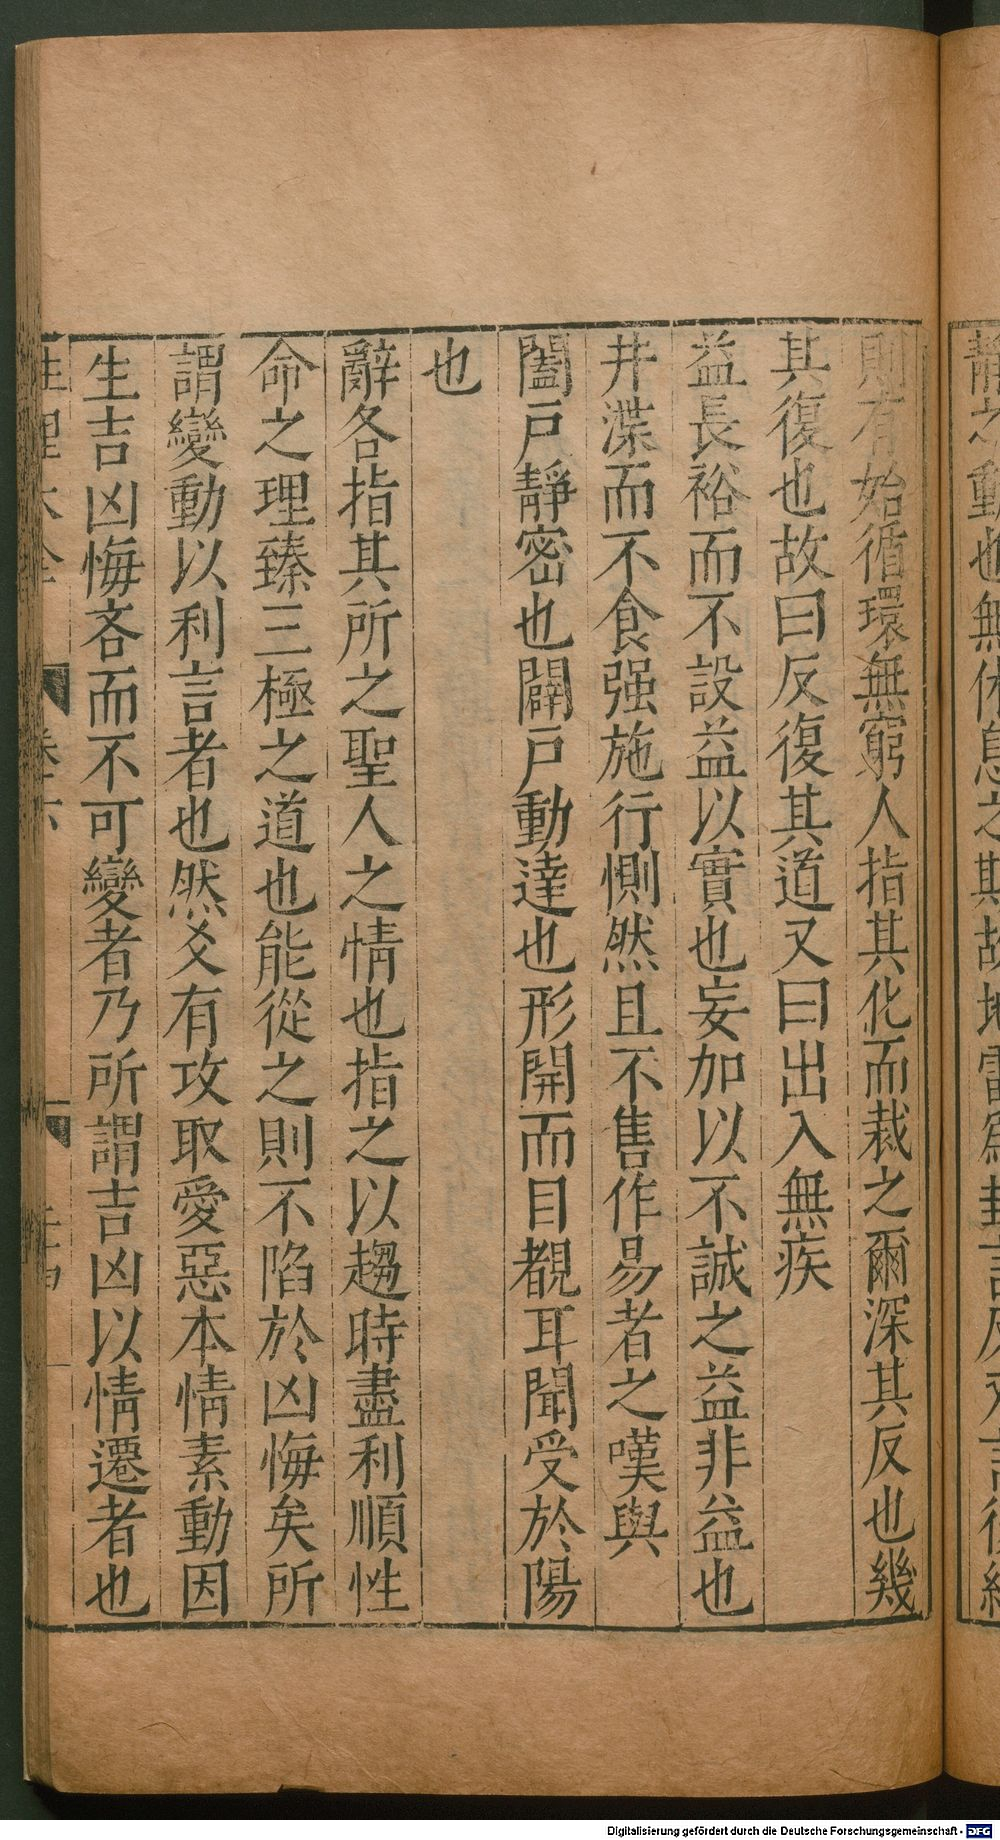 靜之動也無休息之期故地雷爲卦言反又言復終
則有始循環無窮人指其化而裁之爾深其反也幾
其復也故曰反復其道又曰出入無疾
益長裕而不設益以實也妄加以不誠之益非益也
井渫而不食强施行惻然且不售作易者之嘆與
闔戶靜密也闢戶動達也形開而目覩耳聞受於陽
也
辭各指其所之聖人之情也指之以趨時盡利順性
命之理臻三極之道也能從之則不陷於凶悔矣所
謂變動以利言者也然爻有攻取愛惡本情素動因
生吉凶悔吝而不可變者乃所謂吉凶以情遷者也
性理大全 卷六
Digitalisierung gefördert durch die Deutsche Forschungsgemeinschaft - DFG